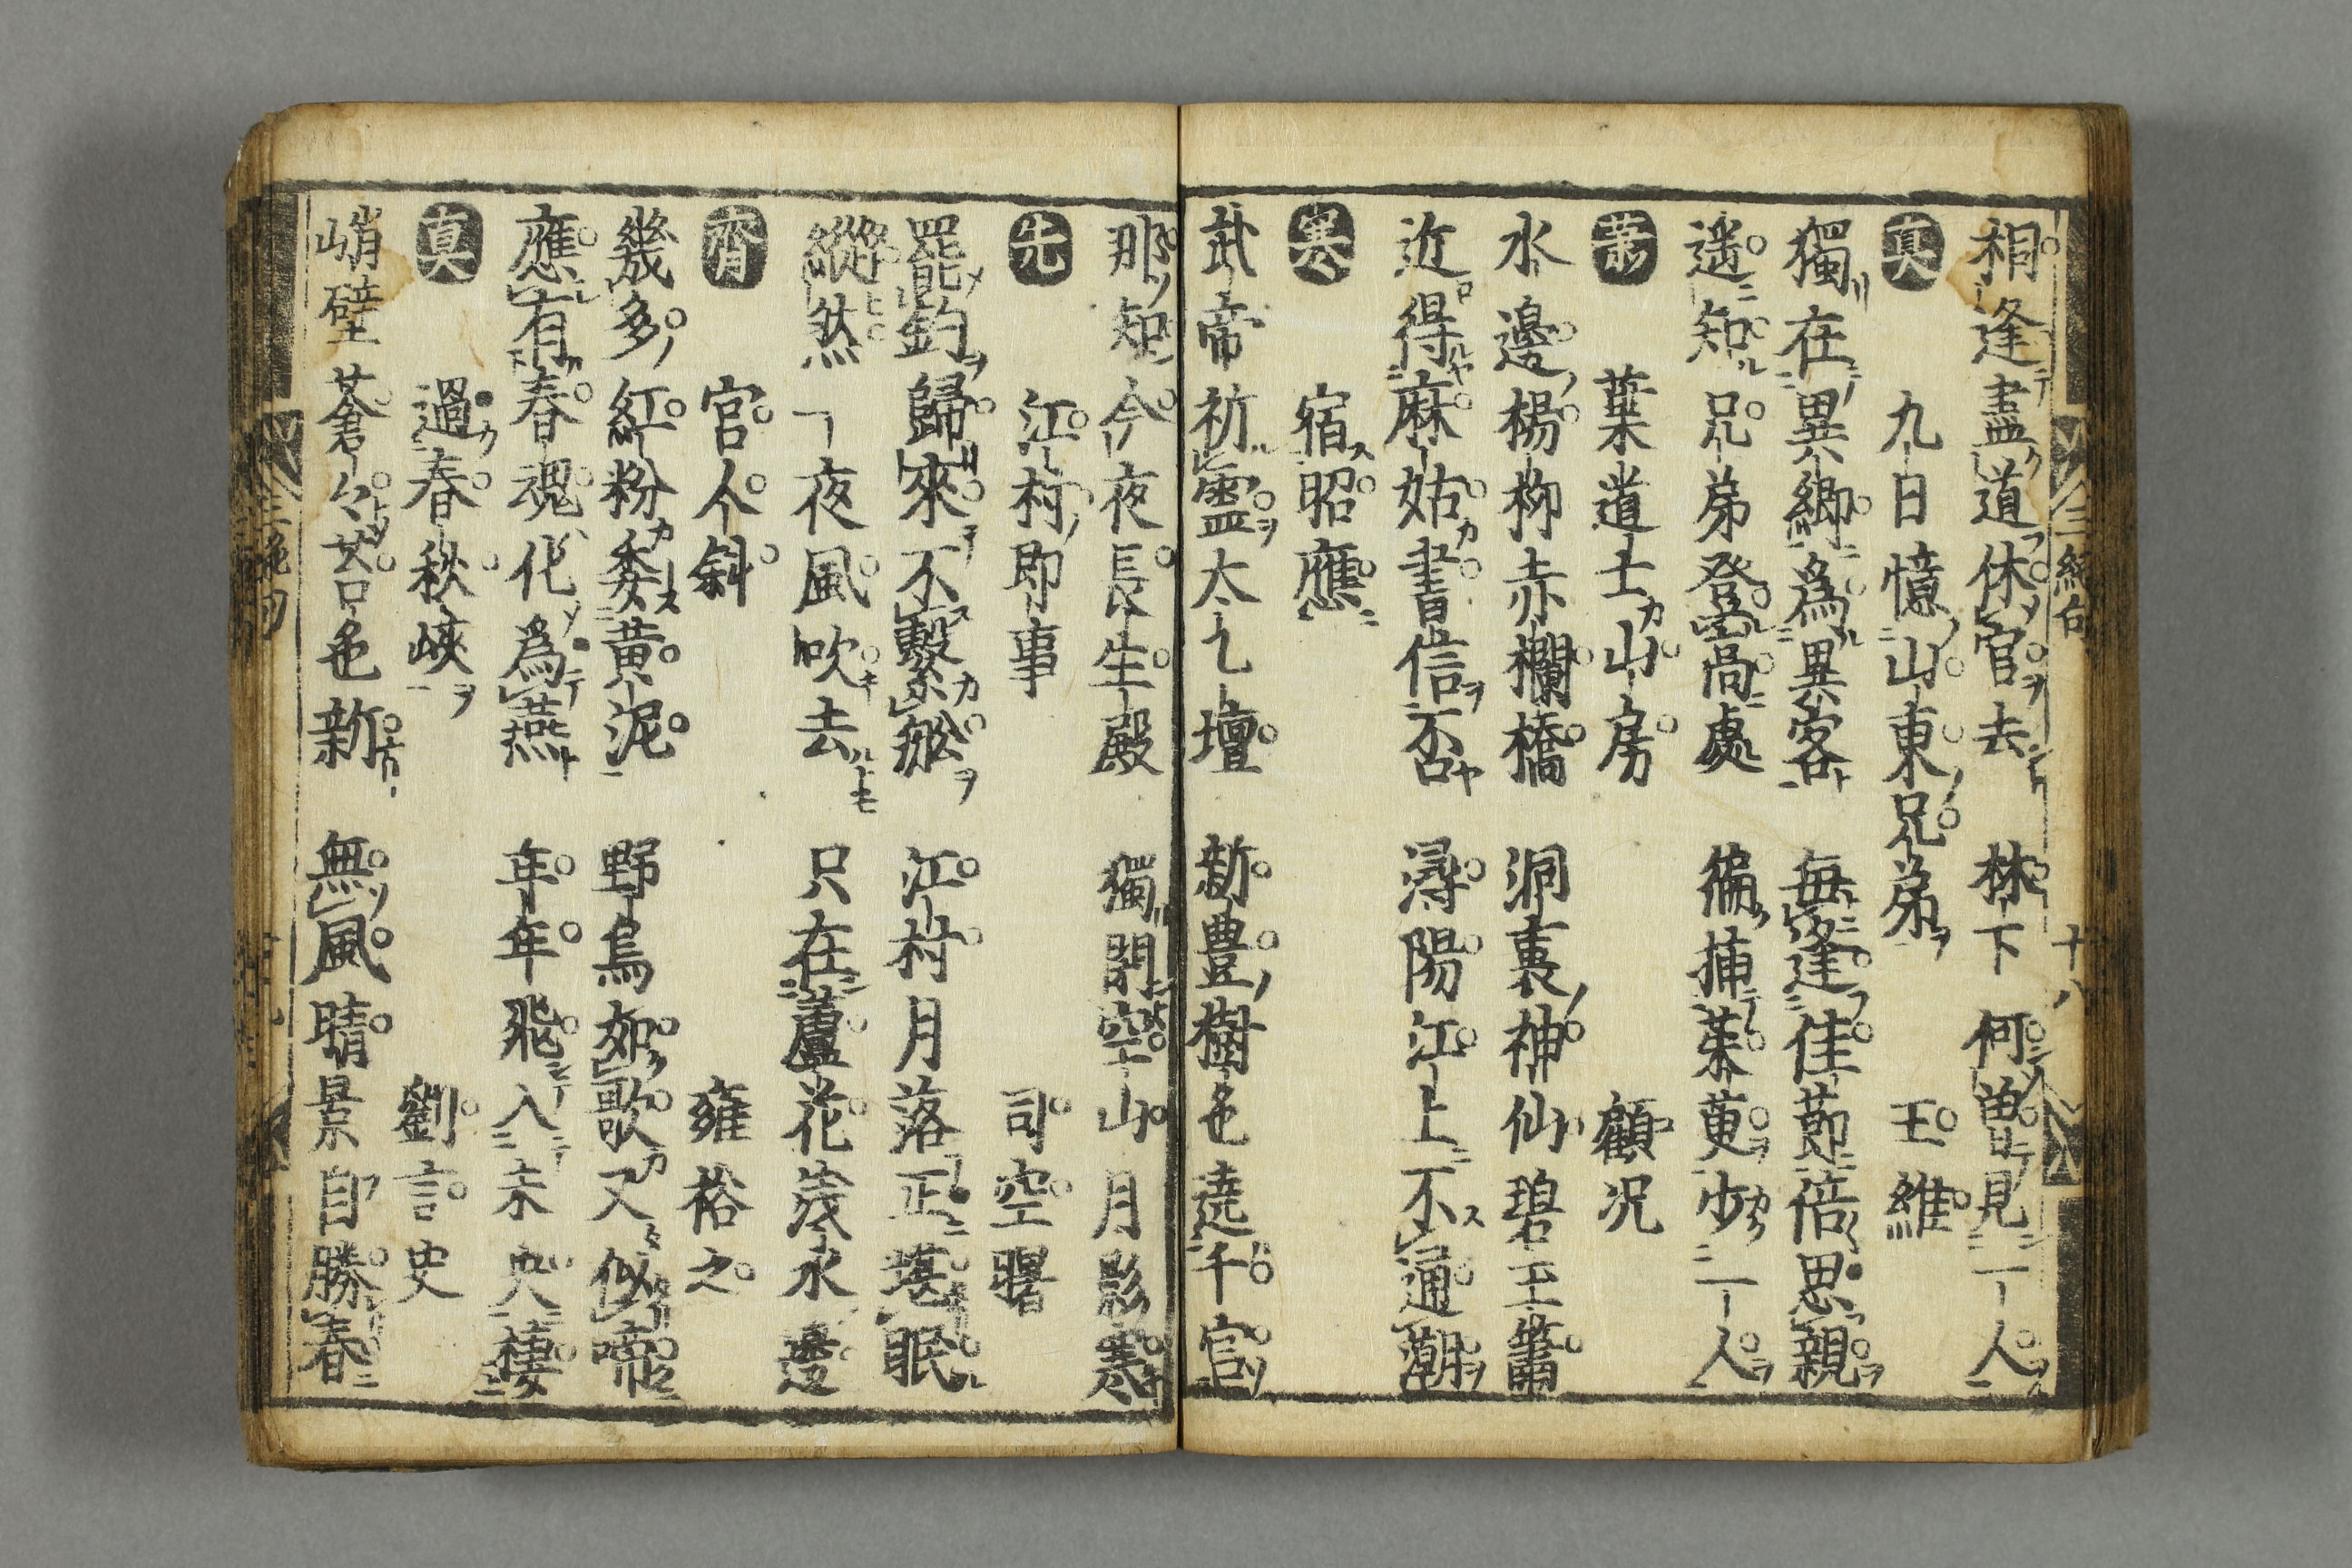 相逢盡道休官去　林下何曽見一人
眞　九日憶山東兄弟　王維
獨在異鄕爲異客　毎逢佳莭倍思親
遥知兄弟登髙處　徧挿茱萸少一人
蕭　葉道士山房　顧况
水邊楊栁赤欄橋　洞裏神仙碧玉簫
近得麻姑書信否　潯陽江上不通潮
寒　宿昭應
武帝祈靈太乙壇　新豊樹色遶千官
那知今夜長生殿　獨閉空山月影寒
先　江村即事　司空曙
罷釣歸來不繫舩　江村月落正堪眠
縱然一夜風吹去　只在蘆花浅水邊
齊　官人斜　雍裕之
幾多紅粉委黄泥　野鳥如歌又似啼
應有春魂化爲燕　年年飛入未央棲
眞　過春秋峽　劉言史
峭壁蒼々苔色新　無風晴景自勝春
三絶句　十八
三絶句